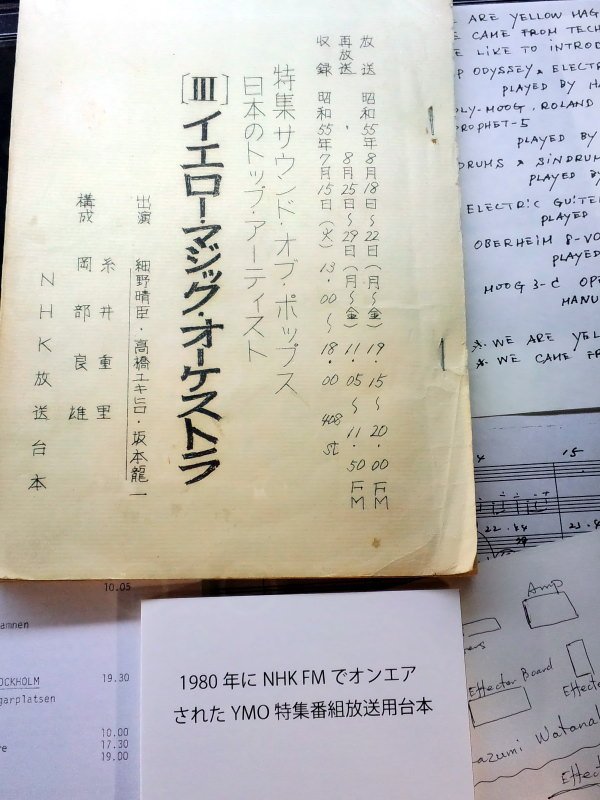 放送 昭和55年8月18日〜22日(月〜金) 19.15〜20.00 FM
再放送 〃 8月25日〜29日(月〜金) 11.05〜11.50 FM
収録 昭和55年7月15日(火) 13.00〜18.00 408 st
特集サウンド・オブ・ポップス
日本のトップ・アーティスト
[III]イエロー・マジック・オーケストラ
出演 細野晴臣・高橋ユキヒロ・坂本龍一
構成 糸井重里
岡部良雄
NHK放送台本
ARE YELLOW MAG
E CAME FROM TECH
E LIKE TO INTROD
P ODYSSEY & ELECTR
PLAYED BY HA
OLY-MOOG, ROLAND
PROPHET-5
PLAYED BY
DRUMS & SINDRUM
PLAYED BY
ELECTRIC GUITE
PLAYED
OBERHEIM 8-VO
PLAYED
MOOG 3-C OPE
MANU
※. WE ARE YEL
※. WE CAME FR
15.
22.24
23.
Amp
Effector Board
Effecte
azumi Watanab
Effecto
10.05
amnen
OCKHOLM 19.30
garplatsen
10.00
17.30
19.00
1980年にNHK FMでオンエア
されたYMO特集番組放送用台本